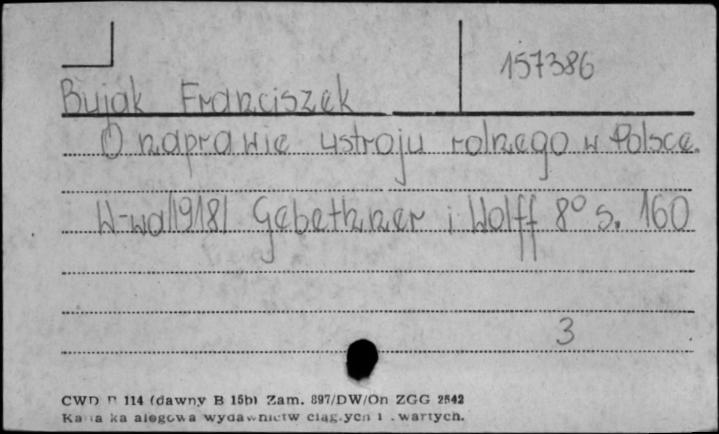 157386
Bujak Franciszek
O naprawie ustroju rolnego w Polsce.
W-wa /1918/ Gebethner i Wolff 8° s. 160
3
CWD 114 (dawny B 15b) Zam. 897/DW/On ZGG 2542
wydawnictw ciągłych i